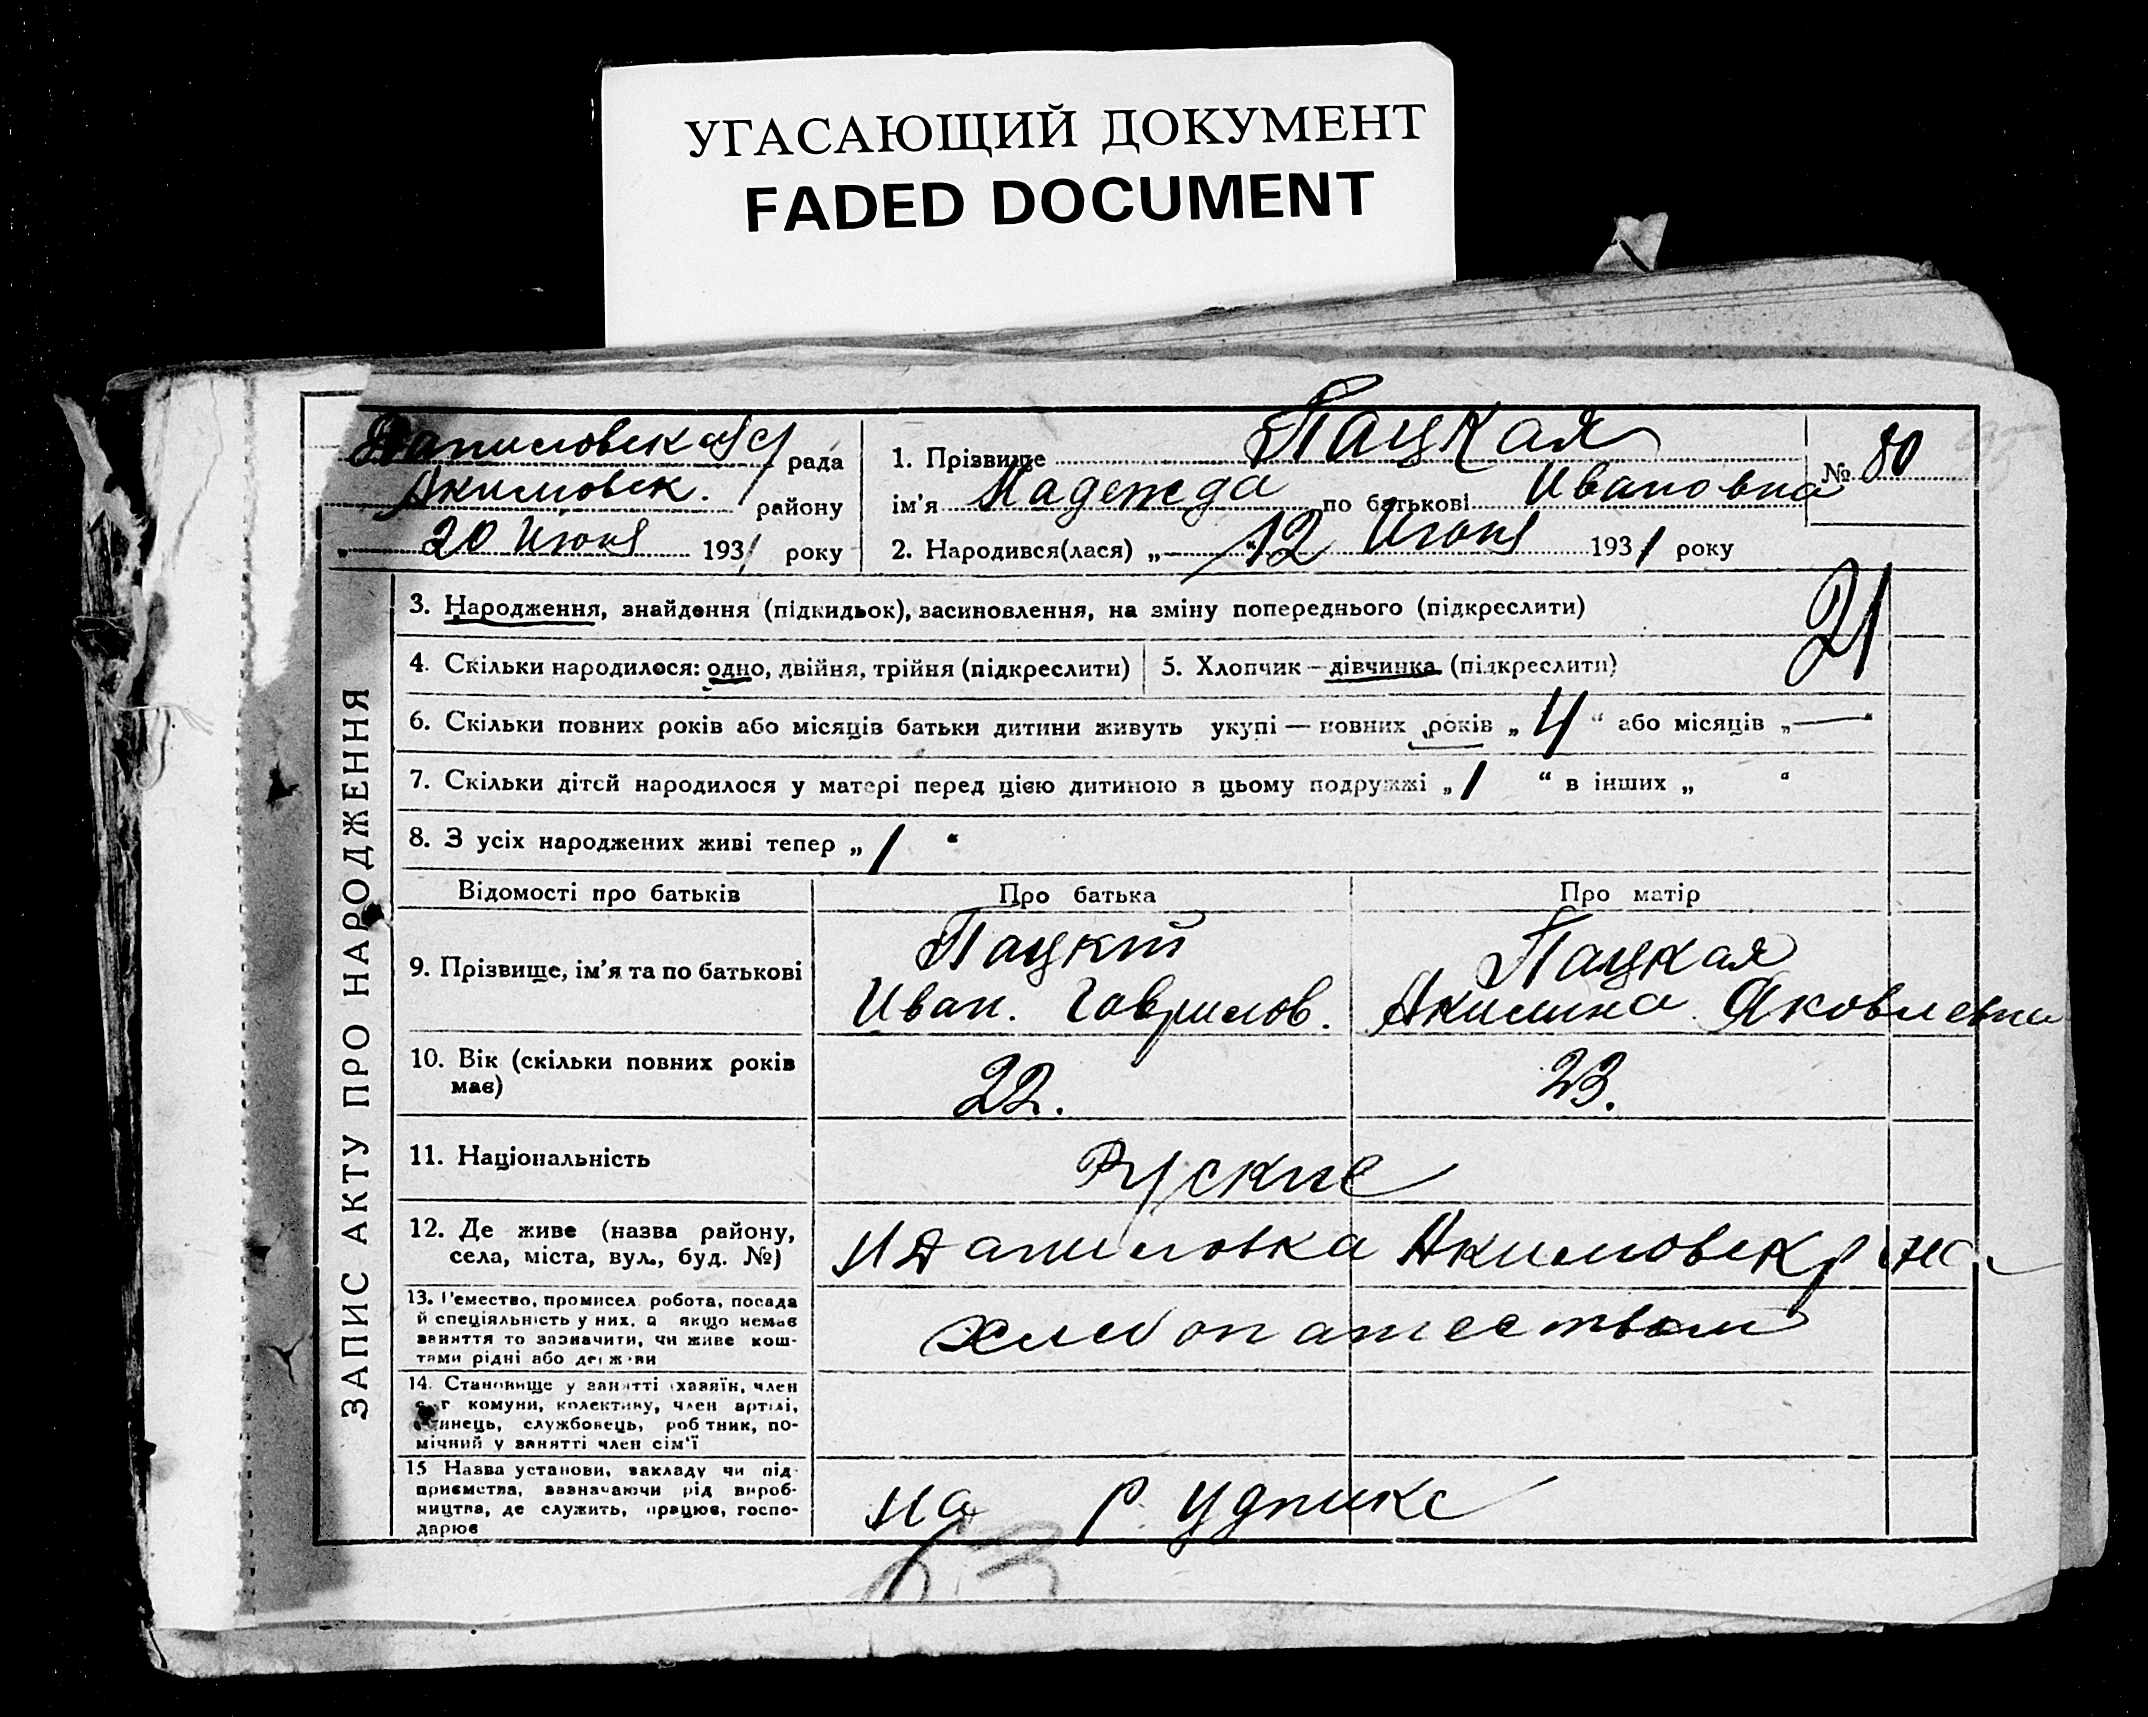 УГАСАЮЩИЙ ДОКУМЕНТ
FADED DOCUMENT
Даниловская рада
Акимовск. району
„ 20 Июня 1931 року
1. Прізвище Пацкая
ім'я Надежда по батькові Ивановна
№ 80
2. Народився(лася) „ 12 Июня 1931 року
21
ЗАПИС АКТУ ПРО НАРОДЖЕННЯ
3. Народження, знайдення (підкидьок), засиновлення, на зміну попереднього (підкреслити)
4. Скільки народилося: одно, двійня, трійня (підкреслити)
5. Хлопчик – дівчинка (підкреслити)
6. Скільки повних років або місяців батьки дитини живуть укупі — повних років „ 4 “ або місяців „ — “
7. Скільки дітей народилося у матері перед цією дитиною в цьому подружжі „ 1 “ в інших „ “
8. З усіх народжених живі тепер „ 1 “
Відомості про батьків Про батька Про матір
9. Прізвище, ім'я та по батькові
Пацкий
Иван. Гаврилов.
Пацкая
Акилина Яковлевна
10. Вік (скільки повних років має)
22. 23.
11. Національність
Руские
12. Де живе (назва району,
села, міста, вул., буд. №)
Даниловка Акимовск р на
13. Ремество, промисел, робота, посада
й спеціяльність у них, а якщо немає
заняття то зазначити, чи живе кош-
тами рідні або держави
хлебопашеством
14. Становище у занятті (хазяїн, член
с.-г комуни, колективу, член артілі,
службовець, робітник, по-
мічний у занятті член сім'ї
15 Назва установи, закладу чи під-
приємства, зазначаючи рід вироб-
ництва, де служить, працює, госпо-
дарює
на руднике
63